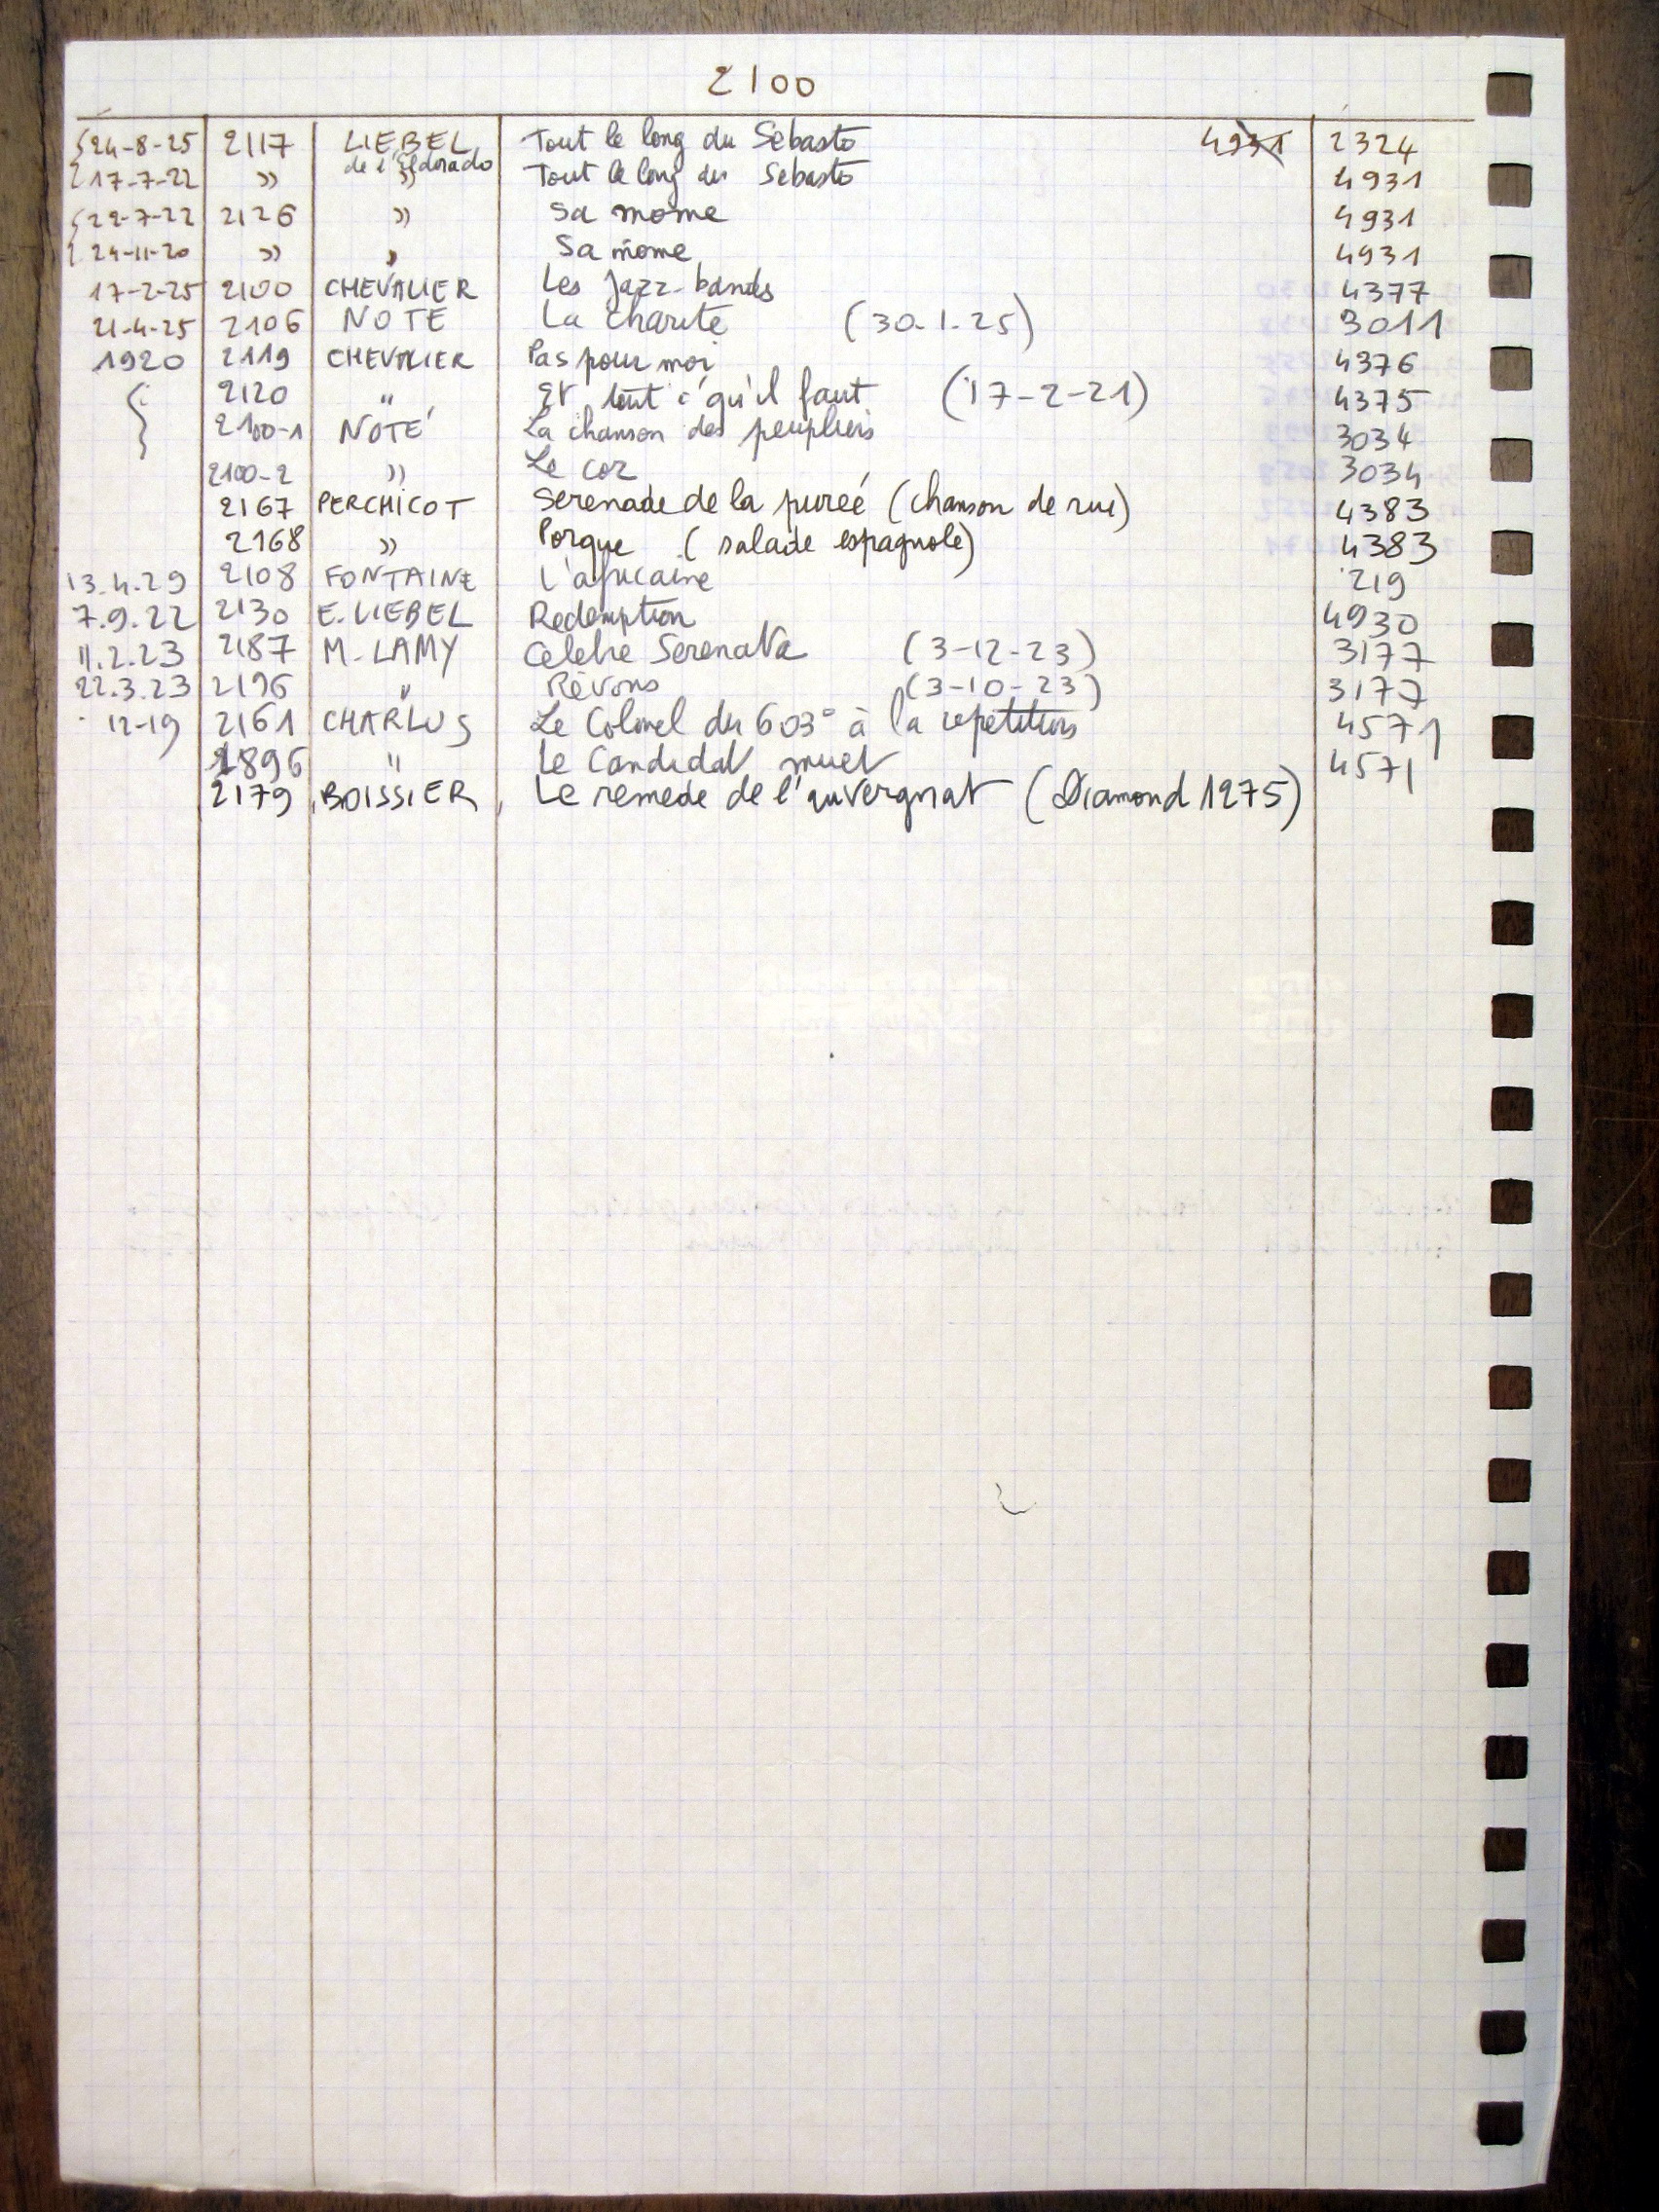 2100
24-8-25 2117 LIEBEL Tout le long du Sébasto 4931 2324
de l'Eldorado
17-7-22 » » Tout le long du Sebasto 4931
22-7-22 2126 » Sa mome 4931
24-11-20 » » Sa mome 4931
17-2-25 2100 CHEVALIER Les Jazz-bands 4377
21-4-25 2106 NOTE La charité (30-1-25) 3011
1920 2119 CHEVALIER Pas pour moi 4376
2120 " Et tout c'qu'il faut (17-2-21) 4375
2100-1 NOTÉ La chanson des peupliers 3034
2100-2 » Le cor 3034
2167 PERCHICOT Serenade de la pureé (chanson de rue) 4383
2168 » Porque (salade espagnole) 4383
13.4.29 2108 FONTAINE L'africaine 219
7.9.22 2130 E. LIEBEL Redemption 4930
11.2.23 2187 M. LAMY Celebre Serenata (3-12-23) 3177
22.3.23 2196 " Rêvons (3-10-23) 3177
12-19 2161 CHARLUS Le Colonel du 603° à la repetition 4571
1896 " Le Candidat muet 4571
2179 BOISSIER Le remede de l'auvergnat (Diamond 1275)